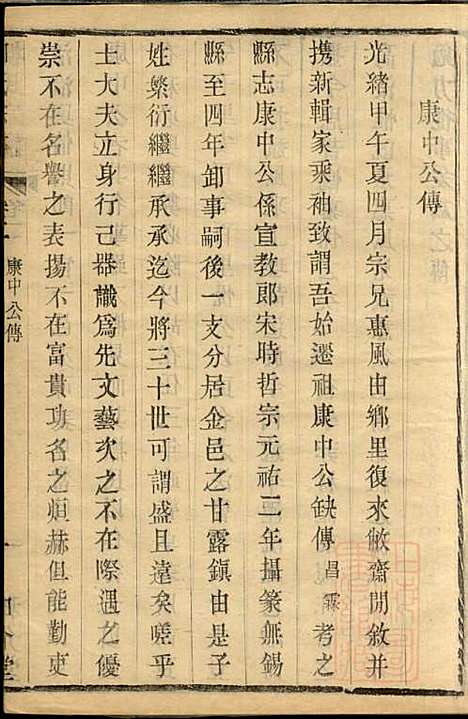 康中公傳
光緒甲午夏四月宗兄惠風由鄉里復來敝齋閒敘并
携新輯家乘袖致謂吾始遷祖康中公缺傳昌霖考之
縣志康中公係宣教郎宋時哲宗元祐二年攝篆無錫
縣至四年卸事嗣後一支分居金邑之甘露鎭由是子
姓繁衍繼繼承承迄今將三十世可謂盛且遠矣嗟乎
士大夫立身行己器識爲先文藝次之不在際遇之優
崇不在名譽之表揚不在富貴功名之烜赫但能勤吏
康中公傳
一